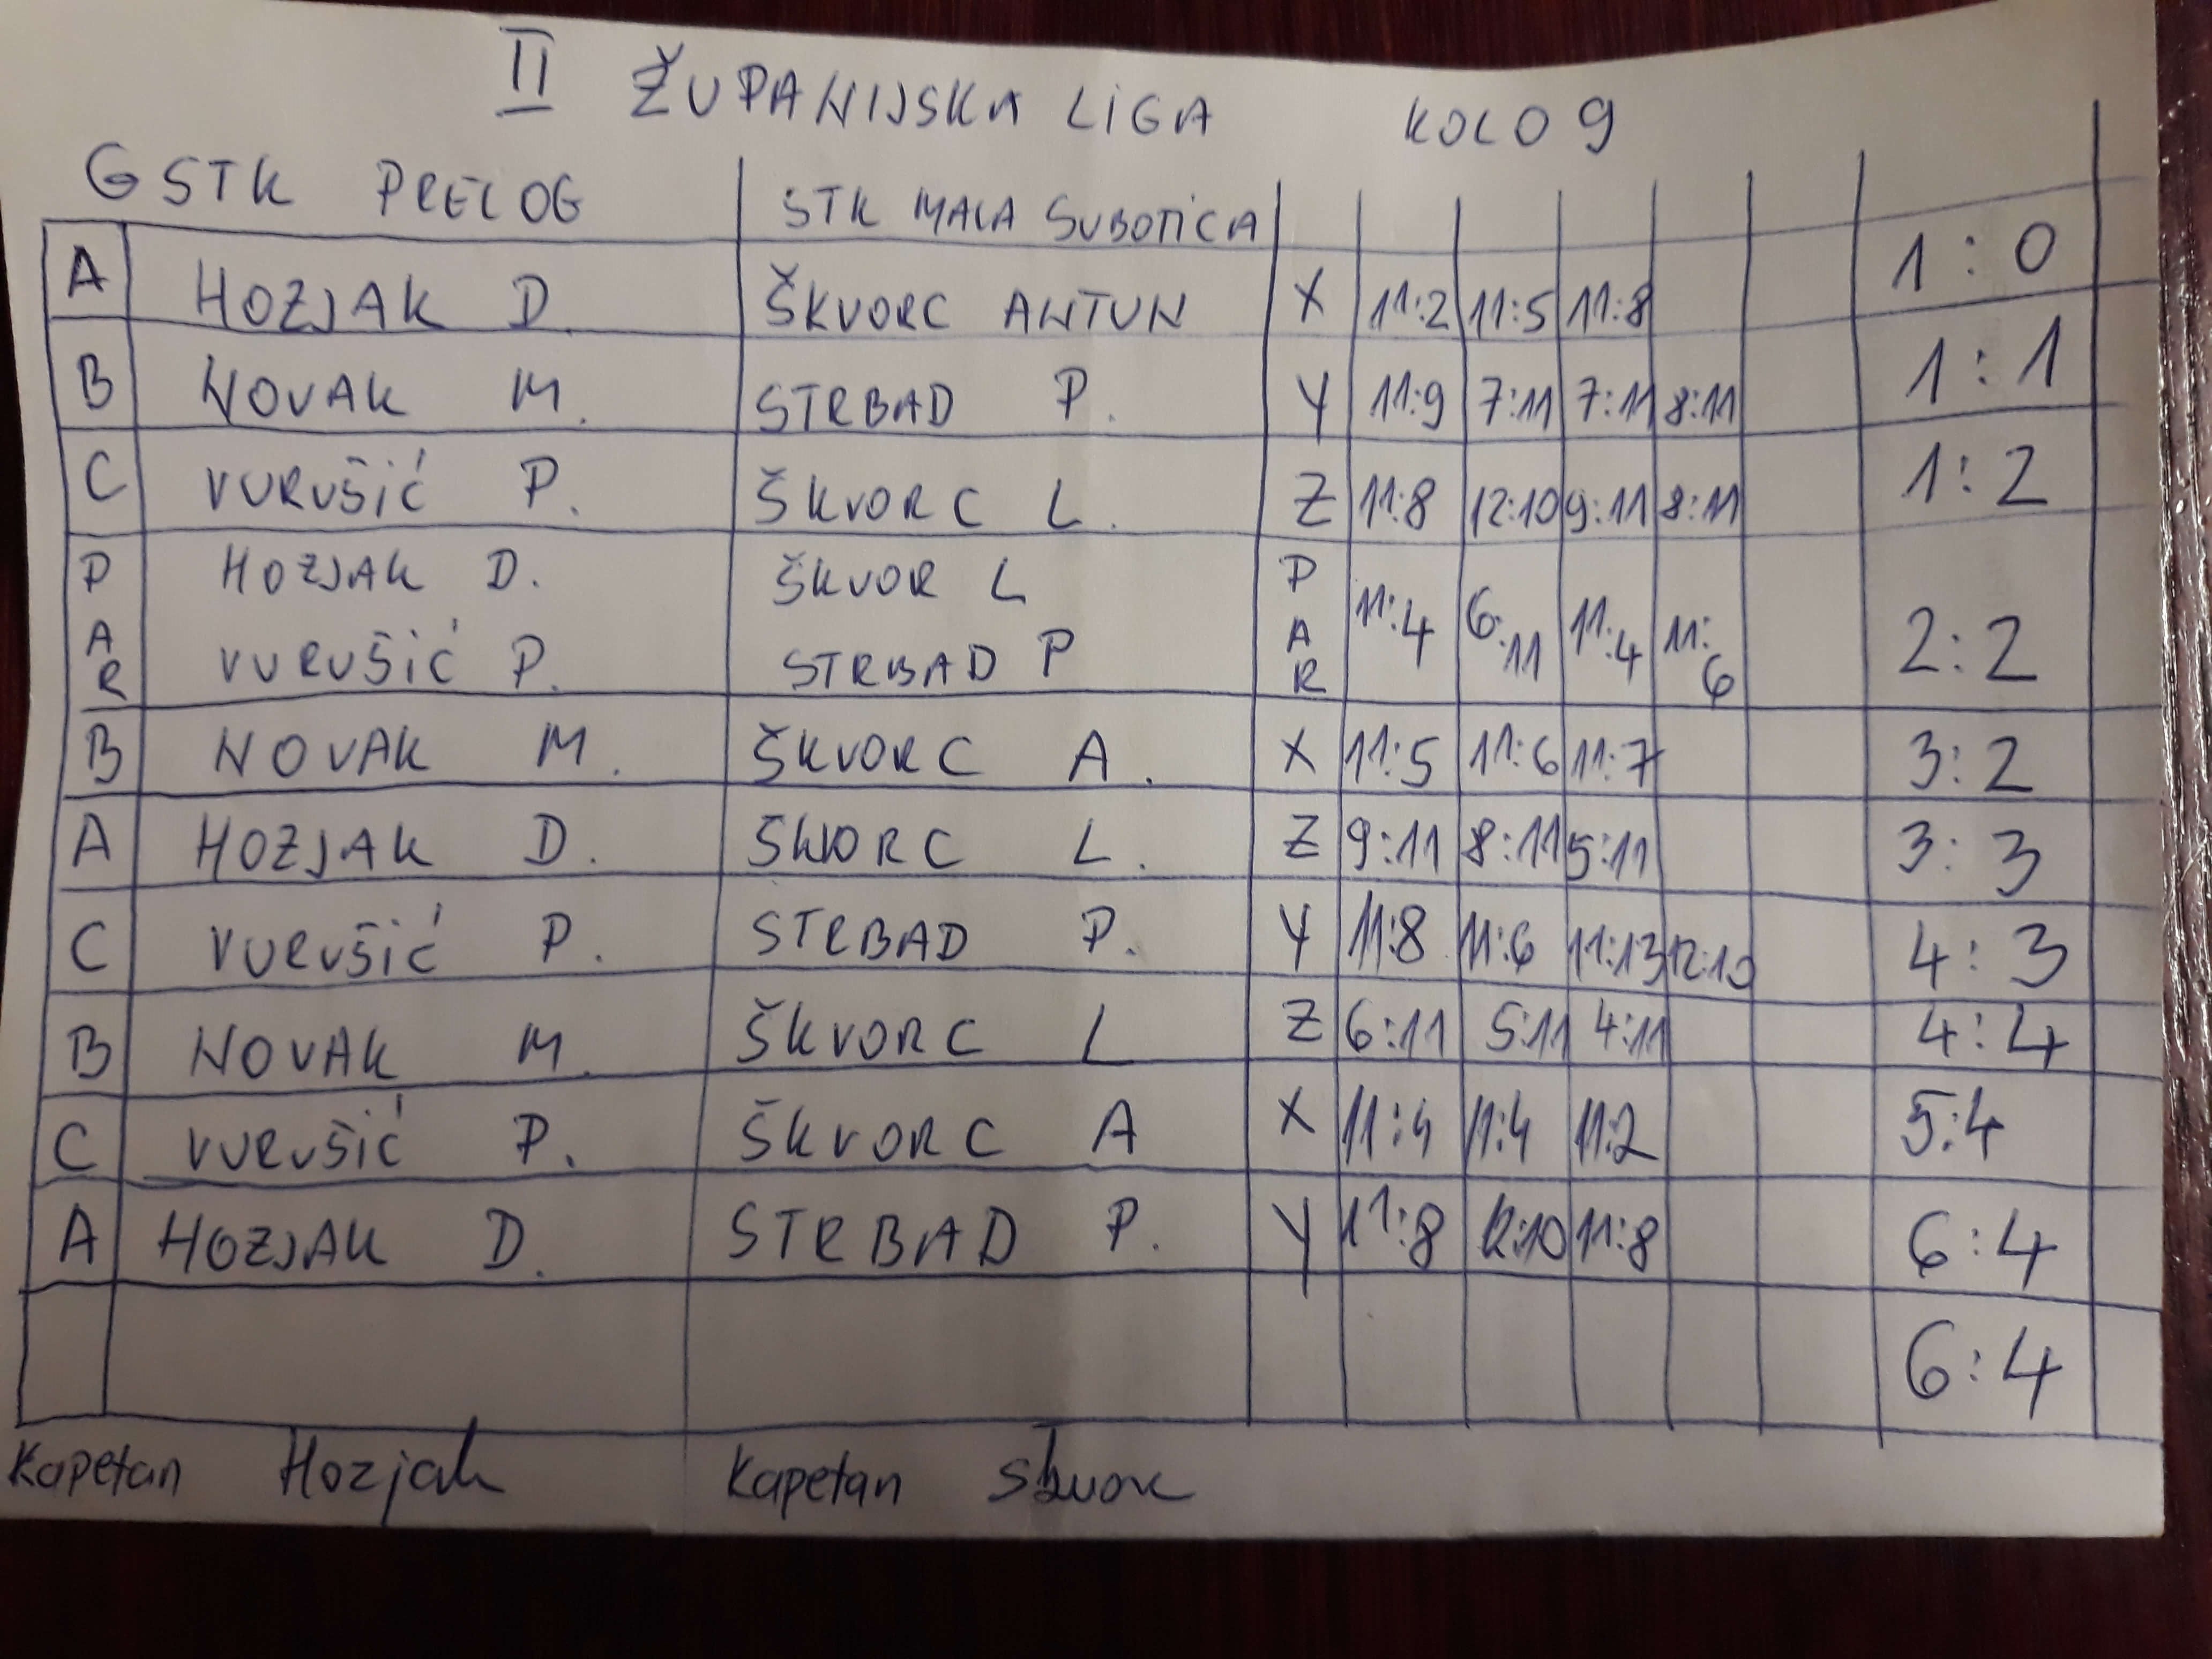 II ŽUPANIJSKA LIGA KOLO 9
GSTK PRELOG STK MALA SUBOTICA
A HOZJAK D. ŠKVORC ANTUN X 11:2 11:5 11:8 1:0
B NOVAK M. STRBAD P. Y 11:9 7:11 7:11 8:11 1:1
C VURUŠIĆ P. ŠKVORC L. Z 11:8 12:10 9:11 8:11 1:2
PAR HOZJAK D. ŠKVOR L PAR 11:4 6:11 11:4 11:6 2:2
VURUŠIĆ P. STRBAD P
B NOVAK M. ŠKVORC A. X 11:5 11:6 11:7 3:2
A HOZJAK D. SKVORC L. Z 9:11 8:11 5:11 3:3
C VURUŠIĆ P. STRBAD P. Y 11:8 11:6 11:13 12:10 4:3
B NOVAK M. ŠKVORC L Z 6:11 5:11 4:11 4:4
C VURUŠIĆ P. ŠKVORC A X 11:4 11:4 11:2 5:4
A HOZJAK D. STRBAD P. Y 11:8 12:10 11:8 6:4
6:4
Kapetan Hozjak Kapetan